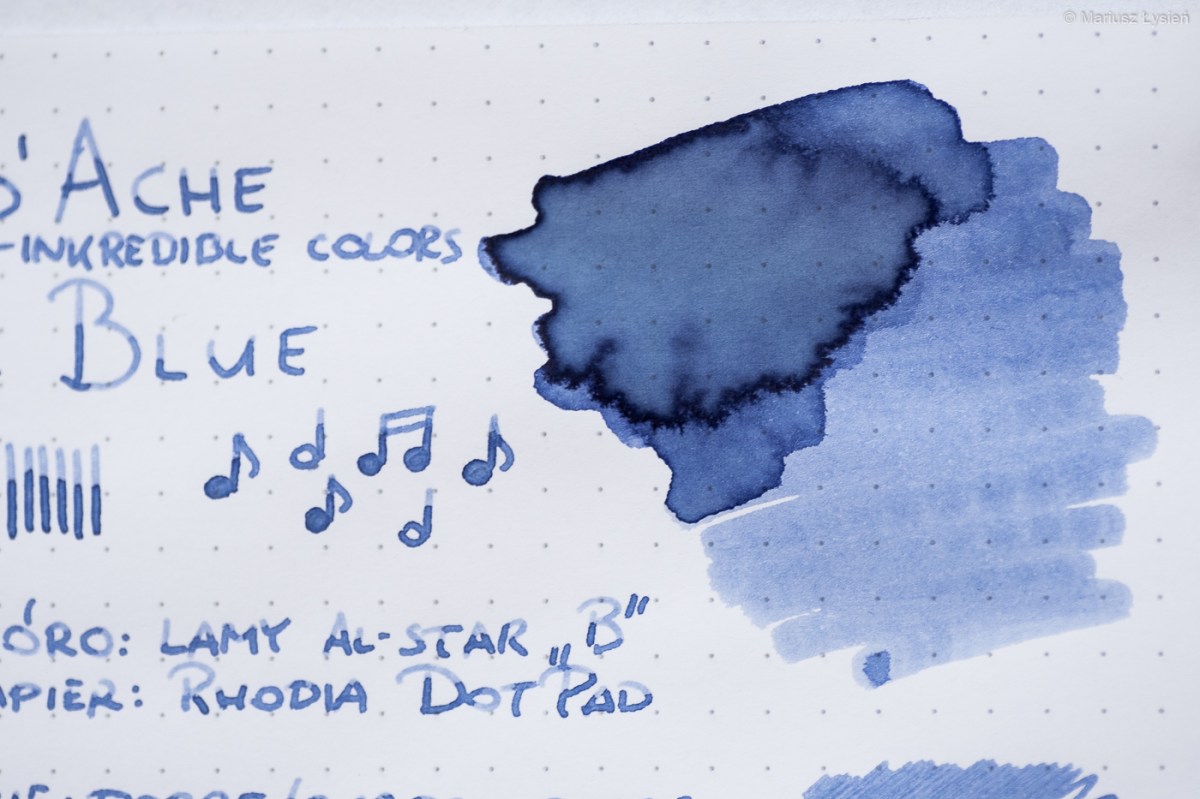 © Mariusz Łysień
'ACHE
-INKREDIBLE COLORS
BLUE
ÓRO: LAMY AL-STAR „B"
APIER: RHODIA DOTPAD